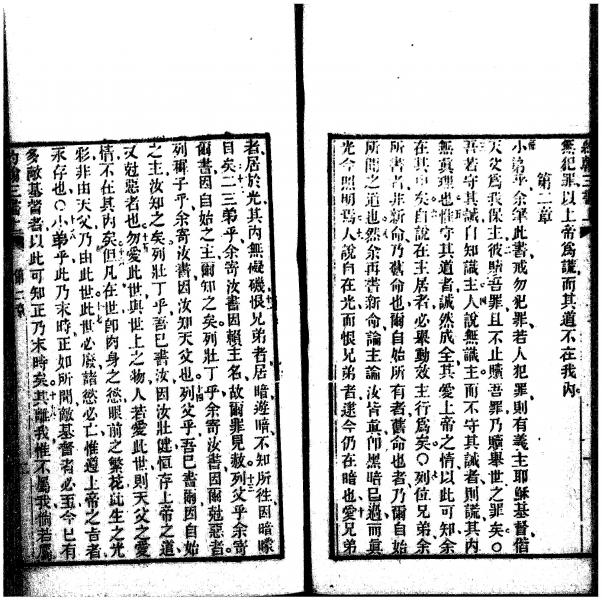 無犯罪以上帝爲謊而其道不在我內
第二章
小弟乎余筆此書戒勿犯罪若人犯罪則有義主耶穌基督偕
天父爲我保主彼贖吾罪且不止贖吾罪乃贖舉世之罪矣○
吾若守其誡自知識主人說無識主而不守其誡者則謊其內
無眞理也惟守其道者誠然成全其愛上帝之情以此可知余
在其中矣自說在主居者必舉動效主行爲矣○列位兄弟余
所書者非新命乃舊命也爾自始所有者舊命也者乃爾自始
所聞之道也然余再書新命主論汝皆眞卽黑暗已過而眞
光今照明焉人說自在光而恨兄弟者迄今仍在暗也愛兄弟
者居於光其內無礙磯恨兄弟者居暗遊暗不知所往因暗矇
目矣○小弟乎余寄汝書因賴主名故爾罪見赦列父乎余寄
爾書因自始之主爾知之矣列壯丁乎余寄汝書因爾尅惡者
列稺子乎余寄汝書因汝知天父也列父乎吾已書爾因自始
之主汝知之矣列壯丁乎吾已書汝因汝壯健恒存上帝之道
又尅惡者也勿愛此世與世上之物人若愛此世則天父之愛
情不在其內矣但凡在世卽肉身之慾眼前之繁花此生之光
彩非由天父乃由此世此世必廢諸慾必亡惟遵上帝之旨者
永存也○小弟乎此乃末時正如所聞敵基督者必至今已有
多敵基督者以此可知正乃末時矣其離我惟不屬我倘若屬